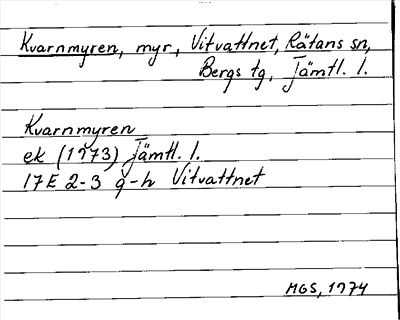 Kvarnmyren, myr, Vitvattnet, Rätans sn,
Bergs tg, Jämtl. l.
Kvarnmyren
ek (1973) Jämtl. l.
17E 2-3 g-h Vitvattnet
MGS, 1974